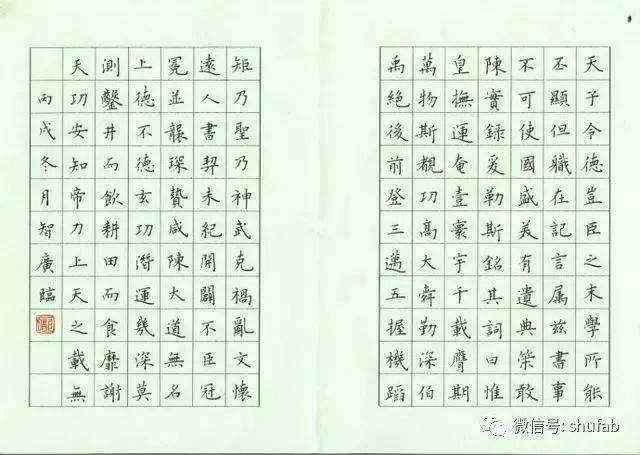 天子令德豈臣之末學所能
丕顯但職在記言属茲書事
不可使國盛美有遺典策敢
陳實錄爰勒斯銘其詞曰惟
皇撫運奄壹寰宇千載膺期
萬物斯覩功髙大舜勤深伯
禹絕後前登三邁五握機蹈
矩乃聖乃神武克禍亂文懷
遠人書契未紀開闢不臣冠
冕並襲琛贄咸陳大道無名
上德不德玄功潛運幾深莫
測鑿井而飲耕田而食靡謝
天功安知帝力上天之載無
丙戌冬月智廣臨
微信号: shufab